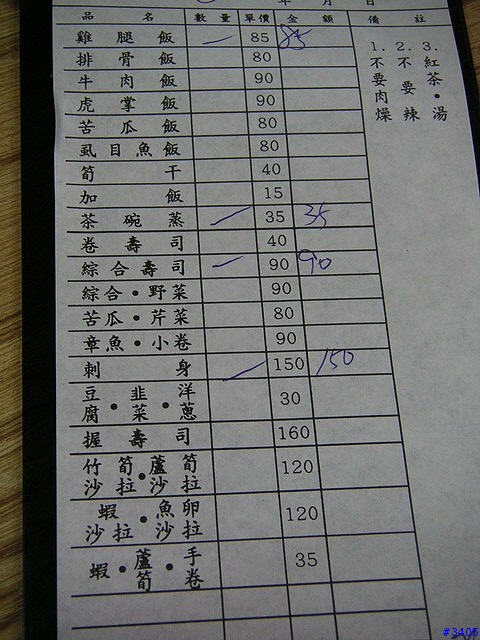 年 月 日
品 名 數 量 單價 金 額 備 註
雞 腿 飯 一 85 85
排 骨 飯 80
牛 肉 飯 90
虎 掌 飯 90
苦 瓜 飯 80
虱 目 魚 飯 80
筍 干 40
加 飯 15
茶 碗 蒸 一 35 35
卷 壽 司 40
綜 合 壽 司 一 90 90
綜合・野菜 90
苦瓜・芹菜 80
章魚・小卷 90
刺 身 一 150 150
豆腐・韭菜・洋蔥 30
握 壽 司 160
竹筍沙拉・蘆筍沙拉 120
蝦沙拉・魚卵沙拉 120
蝦・蘆筍・手卷 35
1.不要肉燥
2.不要辣
3.紅茶・湯
#3406